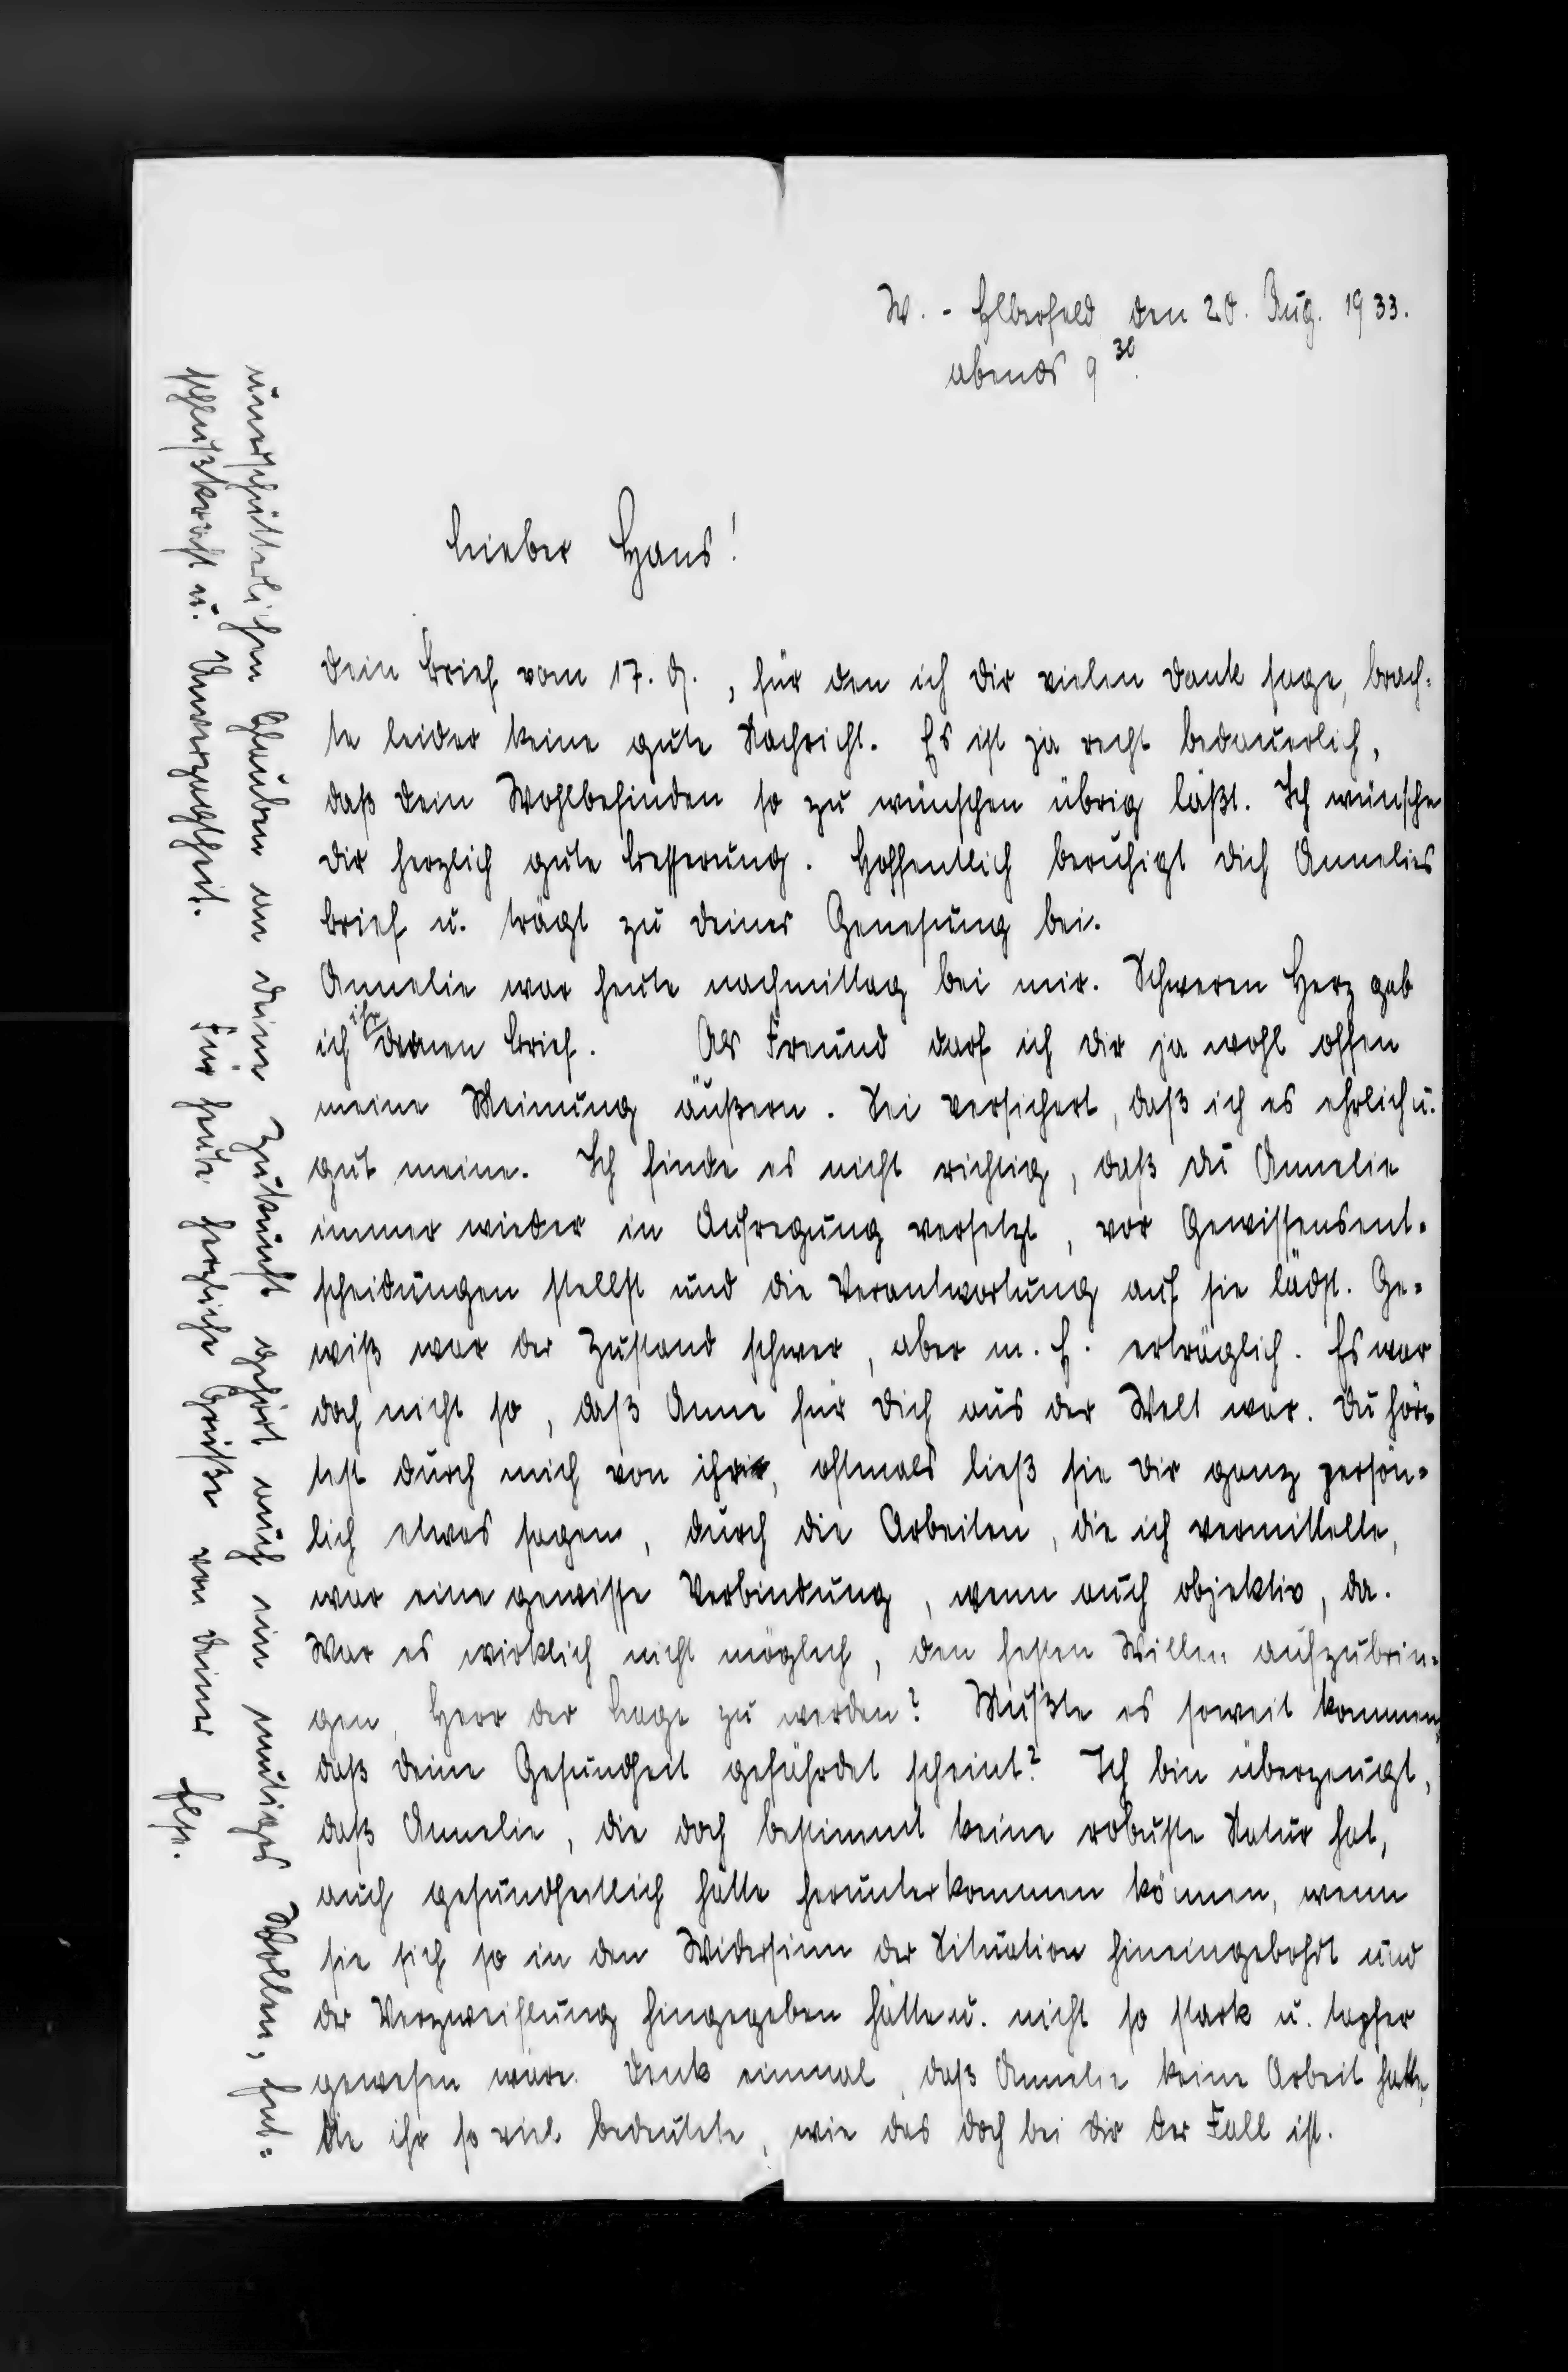 W. - Elberfeld, den 20. Aug. 1933.
abends 9 30.
Lieber Hans!
Dein Brief vom 17. d., für den ich Dir vielen Dank sage, brach=
te leider keine gute Nachricht. Es ist ja recht bedauerlich,
daß Dein Wohlbefinden so zu wünschen übrig läßt. Ich wünsche
Dir herzlich gute Besserung. Hoffentlich beruhigt Dich Annelies
Brief u. trägt zu Deiner Genesung bei.
Annelie war heute nachmittag bei mir. Schweren Herz gab
ich ihr Deinen Brief. Als Freund darf ich Dir ja wohl offen
meine Meinung äußern. Sei versichert, daß ich es ehrlich u.
gut meine. Ich finde es nicht richtig, daß Du Annelie
immer wieder in Aufregung versetzt, vor Gewissensent=
scheidungen stellst und die Verantwortung auf sie lädst. Ge=
wiß war der Zustand schwer, aber m. E. erträglich. Es war
doch nicht so, daß Anne für Dich aus der Welt war. Du hör=
test durch mich von ihr, oftmals ließ sie Dir ganz persön=
lich etwas sagen, durch die Arbeiten, die ich vermittelte,
war eine gewisse Verbindung, wenn auch objektiv, da.
War es wirklich nicht möglich, den festen Willen aufzubrin=
gen, Herr der Lage zu werden? Mußte es soweit kommen,
daß Deine Gesundheit gefährdet scheint? Ich bin überzeugt,
daß Annelie, die doch bestimmt keine robuste Natur hat,
auch gesundheitlich hätte herunterkommen können, wenn
sie sich so in den Widersinn der Situation hineingebohrt und
der Verzweiflung hingegeben hätte u. nicht so stark u. tapfer
gewesen wäre. Denk einmal, daß Annelie keine Arbeit hatte,
die ihr so viel bedeutete, wie das doch bei Dir der Fall ist.
unerschütterlichen Glauben an Deine Zukunft gehört auch ein mutiges Wollen, Ent=
schlußkraft u. Unverzagtheit. Für heute herzliche Grüße von Deiner Else.